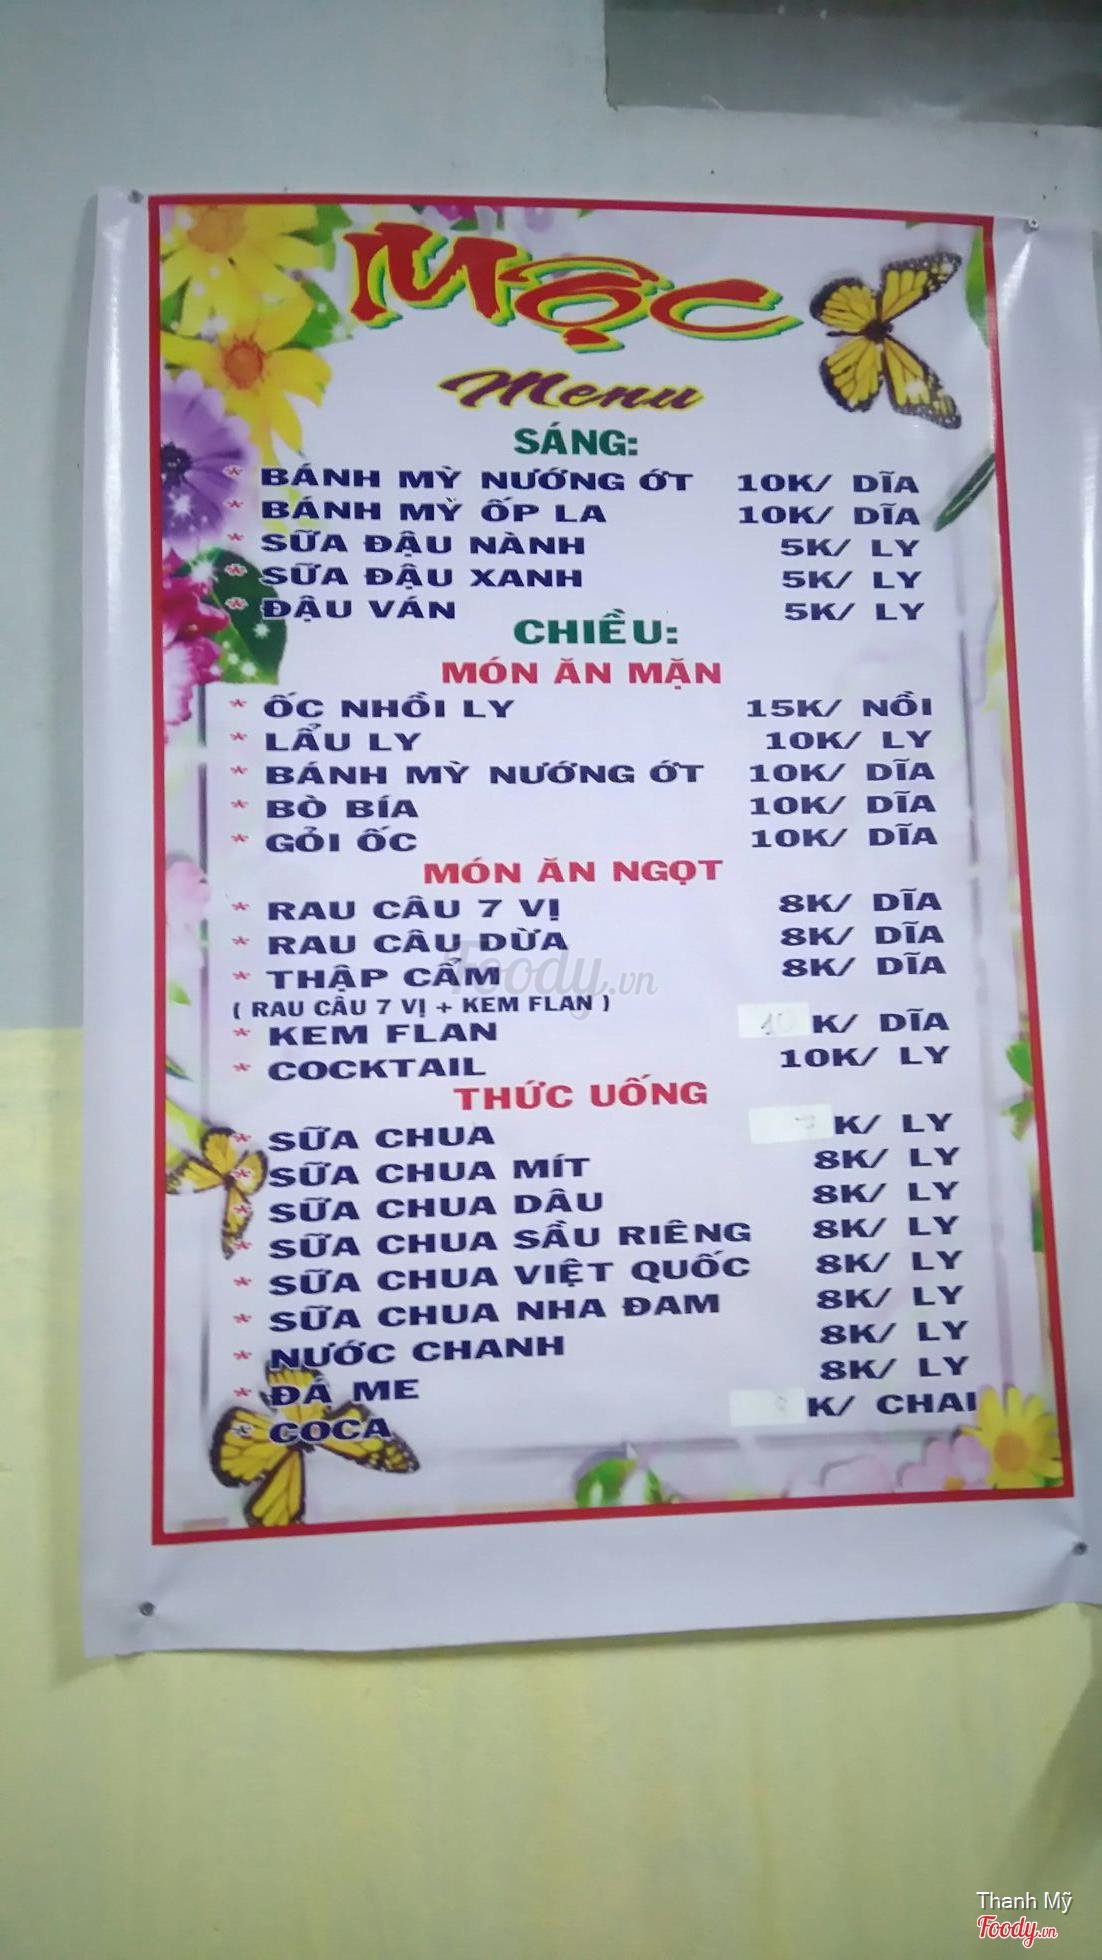 MỘC
Menu
SÁNG:
* BÁNH MỲ NƯỚNG ỚT 10K/ DĨA
* BÁNH MỲ ỐP LA 10K/ DĨA
* SỮA ĐẬU NÀNH 5K/ LY
* SỮA ĐẬU XANH 5K/ LY
* ĐẬU VÁN 5K/ LY
CHIỀU:
MÓN ĂN MẶN
* ỐC NHỒI LY 15K/ NỒI
* LẨU LY 10K/ LY
* BÁNH MỲ NƯỚNG ỚT 10K/ DĨA
* BÒ BÍA 10K/ DĨA
* GỎI ỐC 10K/ DĨA
MÓN ĂN NGỌT
* RAU CÂU 7 VỊ 8K/ DĨA
* RAU CÂU DỪA 8K/ DĨA
* THẬP CẨM 8K/ DĨA
( RAU CÂU 7 VỊ + KEM FLAN )
* KEM FLAN 10 K/ DĨA
* COCKTAIL 10K/ LY
THỨC UỐNG
* SỮA CHUA 7 K/ LY
* SỮA CHUA MÍT 8K/ LY
* SỮA CHUA DÂU 8K/ LY
* SỮA CHUA SẦU RIÊNG 8K/ LY
* SỮA CHUA VIỆT QUỐC 8K/ LY
* SỮA CHUA NHA ĐAM 8K/ LY
* NƯỚC CHANH 8K/ LY
* ĐÁ ME 8K/ LY
* COCA 8 K/ CHAI
Foody.vn
Thanh Mỹ
Foody.vn